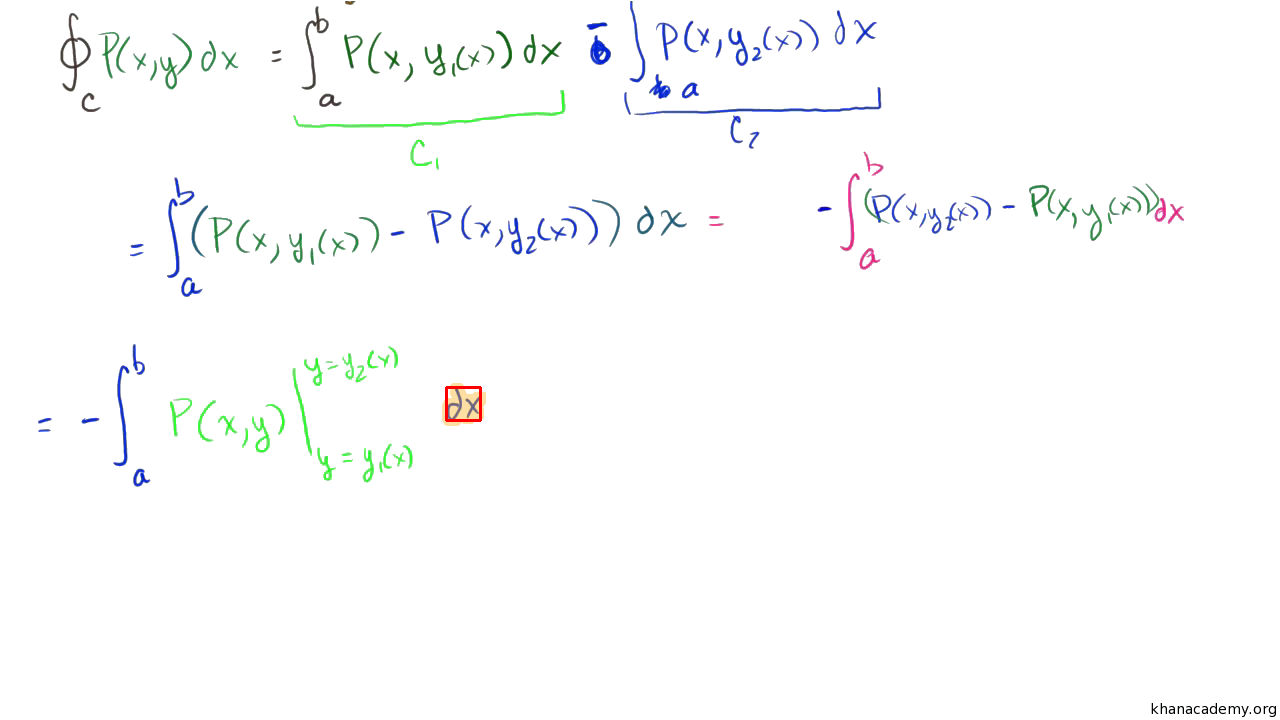 ∮_C P(x,y) dx = ∫_a^b P(x, y₁(x)) dx − ∫_a P(x, y₂(x)) dx
C₁ C₂
= ∫_a^b (P(x, y₁(x)) - P(x, y₂(x))) dx = - ∫_a^b (P(x, y₂(x)) - P(x, y₁(x))) dx
= - ∫_a^b P(x,y) |_{y = y₁(x)}^{y = y₂(x)} dx
khanacademy.org